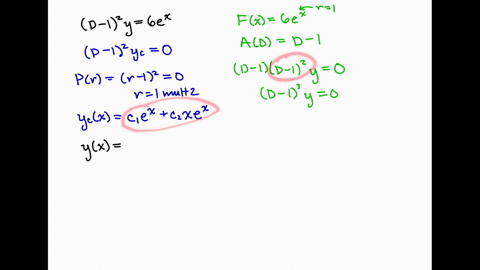 (D-1)²y = 6eˣ
(D-1)²y_c = 0
P(r) = (r-1)² = 0
r = 1 mult 2
y_c(x) = c₁eˣ + c₂xeˣ
y(x) =
F(x) = 6eˣ ← r=1
A(D) = D-1
(D-1)(D-1)²y = 0
(D-1)³y = 0